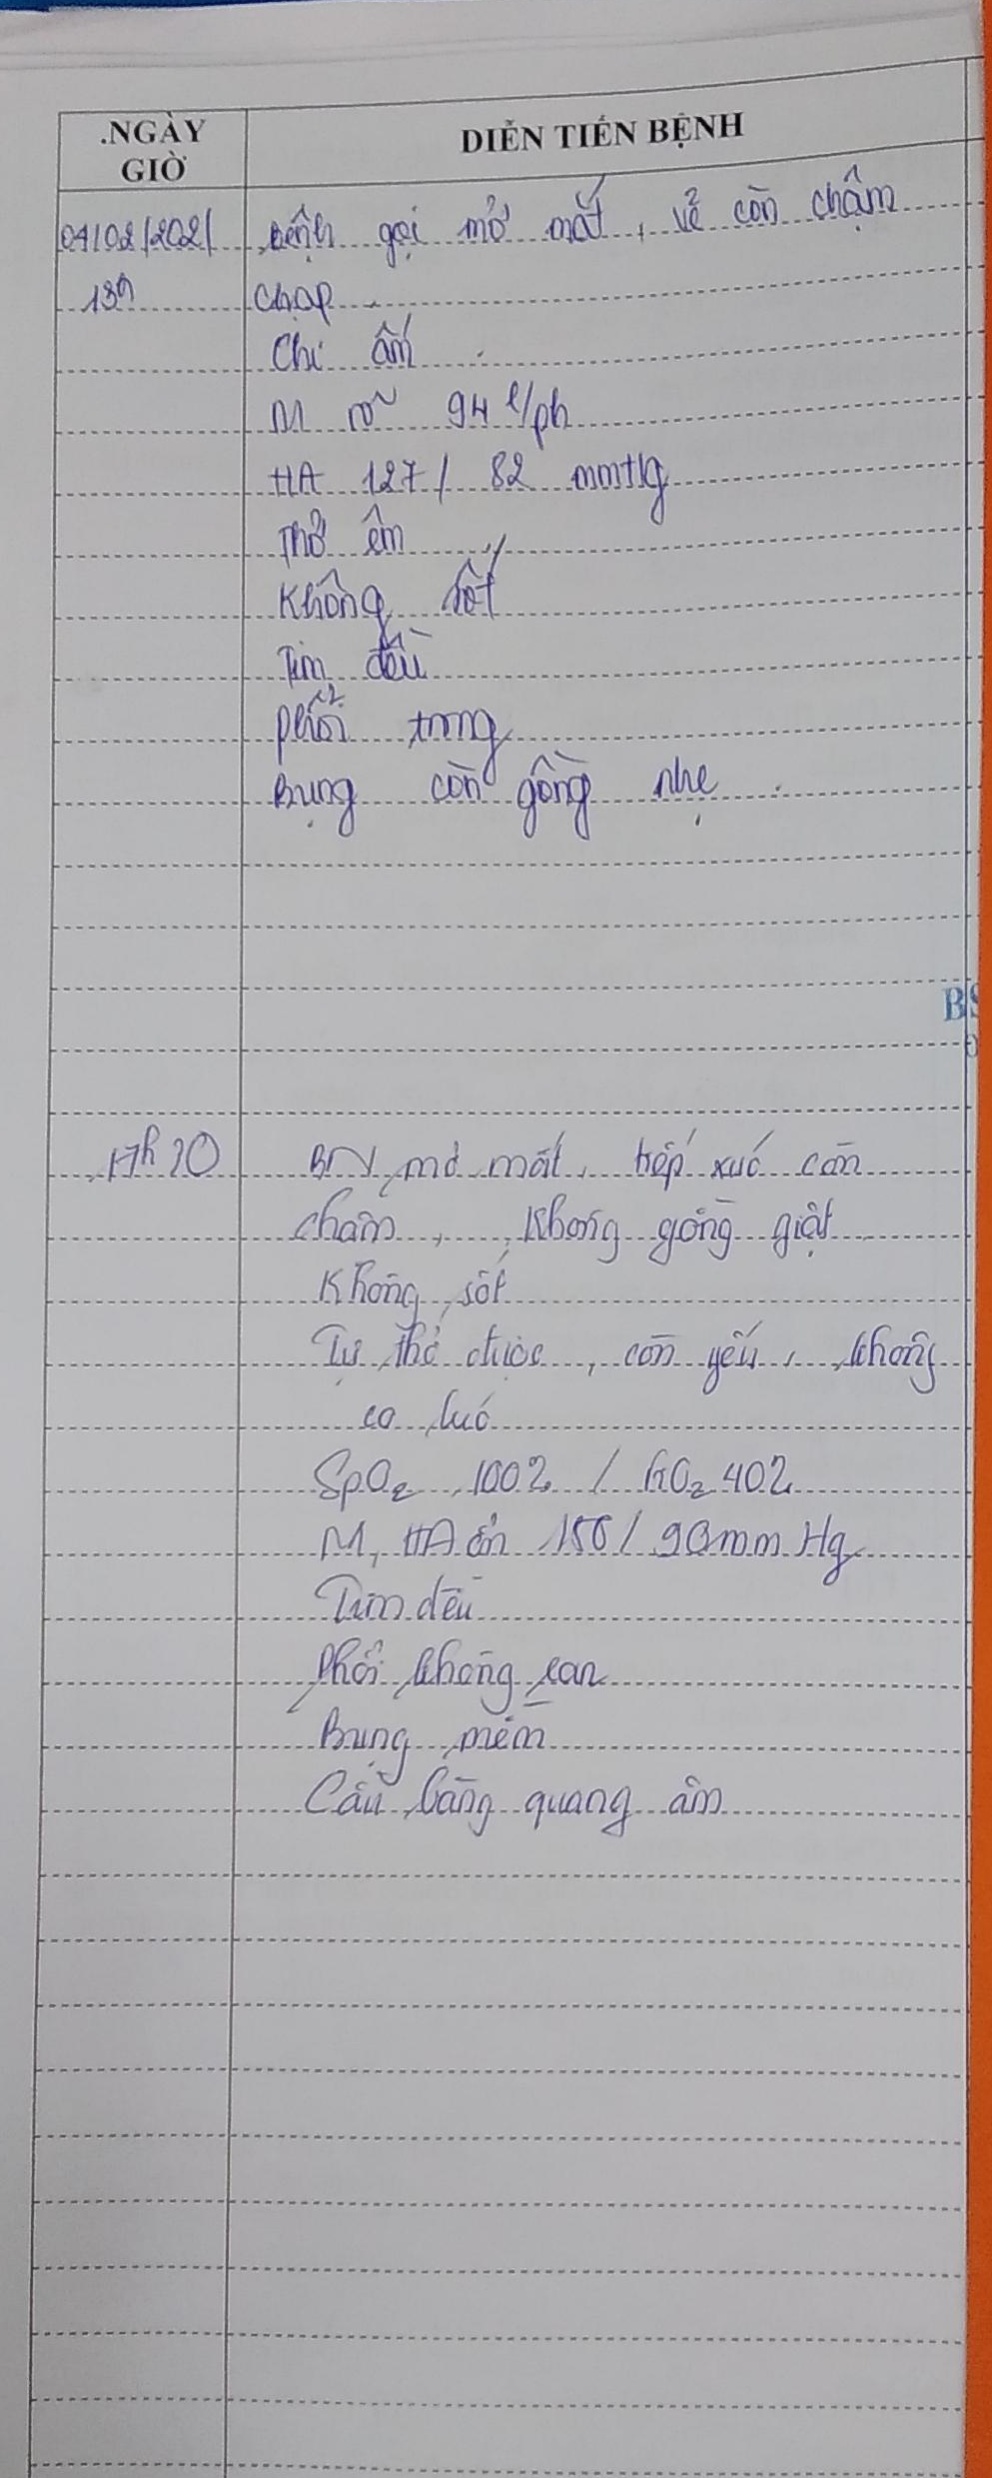 .NGÀY GIỜ
DIỄN TIẾN BỆNH
04/02/2021 bệnh gọi mở mắt, vẻ còn chậm
13h chạp
Chi ấm
M rõ 94 l/ph
HA 127/82 mmHg
Thở êm
Không sốt
Tim đều
Phổi trong
Bụng còn gồng nhẹ
17h20 BN mở mắt, tiếp xúc còn
chậm, không gồng giật
Không sốt
Tự thở được, còn yếu, không
co lúc
SpO2 100% / FiO2 40%
M, HA ổn 150/90mmHg
Tim đều
Phổi không ran
Bụng mềm
Cầu bàng quang âm
BS